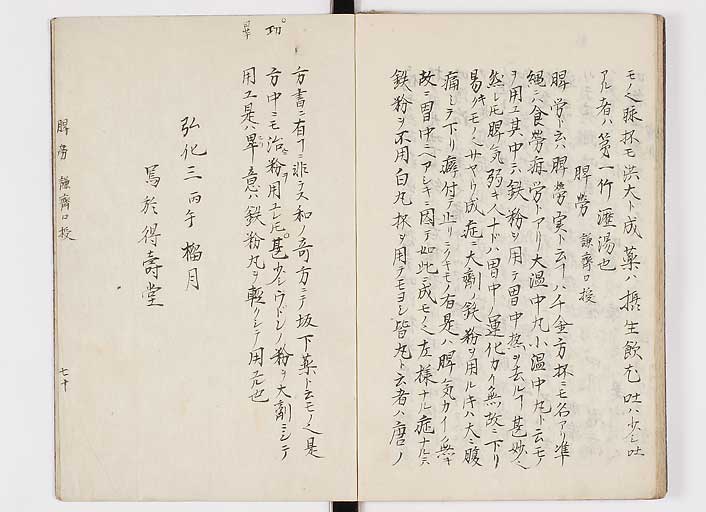 モノ也脉抔モ洪大ト成 薬ハ攝生飲也 吐ハ少シ吐
アル者ハ第一竹瀝湯也
脾労 謙齊口授
脾労ト云ハ脾労実ト云テハ千金方抔ニモ名アリ準
縄ニハ食労疳労トアリ大温中丸小温中丸ト云モノ
ヲ用ユ其中ニ鉄粉ヲ用テ胃中熱ヲ去ルヿ甚妙也
然レ𪜈脾気弱キ人ナドハ胃中ノ運化力無故ニ下リ
易キモノ也ヤハリ成症ニ大剤ノ鉄粉ヲ用ルキハ大ニ腹
痛シテ下リ癖付テ止リ有是ハ脾気カイノ無キ
故ニ胃中ニ因テ如此ニ成モノ也左様ナル症ナルニ
鉄粉ヲ不用白丸抔ヲ用テモヨシ皆丸ト云者ハ唐ノ
方書ニ有ヿニ非ラス和ノ奇方ニテ坂下薬ト云モノ也是
方中ニモ治粉用ユレ𪜈甚少シウドンノ粉ヲ大剤ニシテ
用ユ是ハ畢竟ハ鉄粉丸ヲ軽クシテ用ユル也
弘化三丙午榴月
写於得壽堂
脾労 謙齊口授
七十